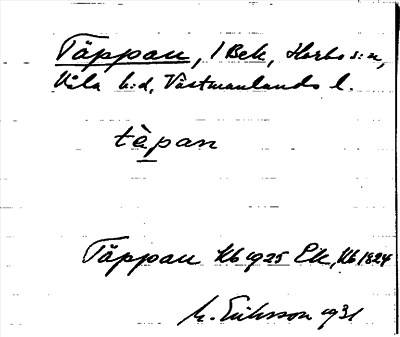 Täppan, 1 Bek, Harbo s:n,
Våla h:d, Västmanlands l.
tèpan
Täppan Kb 1925 Ek, Kb 1824
M. Eriksson 1931